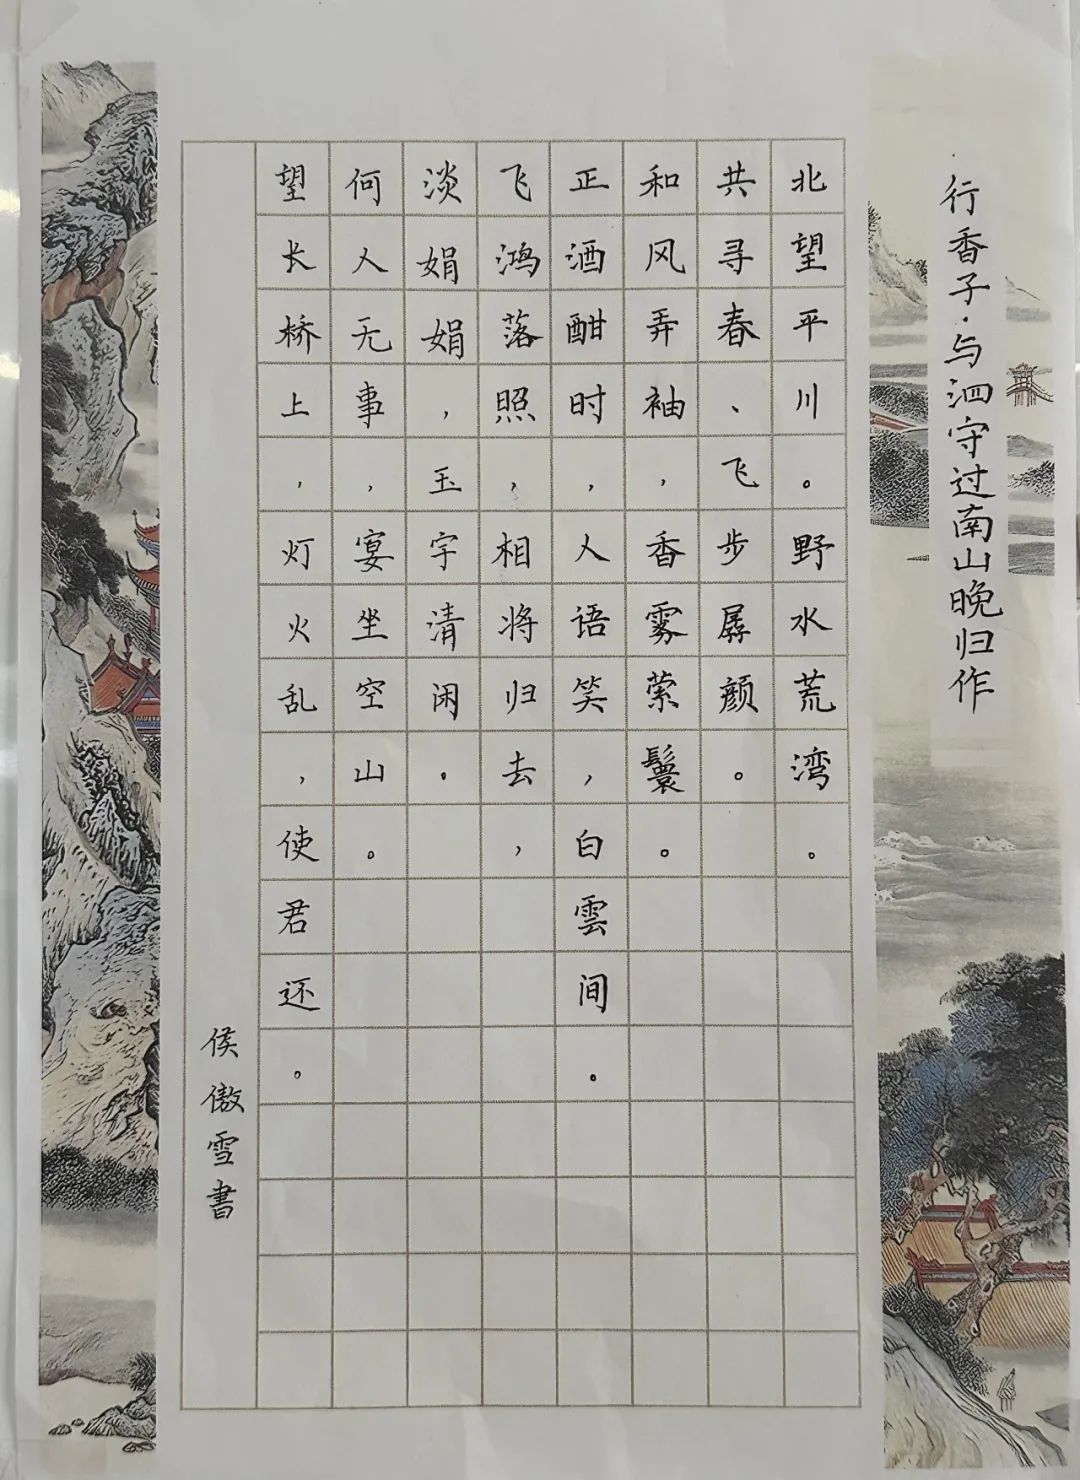 行香子·与泗守过南山晚归作
北望平川。野水荒湾。
共寻春、飞步孱颜。
和风弄袖,香雾萦鬟。
正酒酣时,人语笑,白雲间。
飞鸿落照,相将归去,
淡娟娟,玉宇清闲。
何人无事,宴坐空山。
望长桥上,灯火乱,使君还。
侯傲雪書